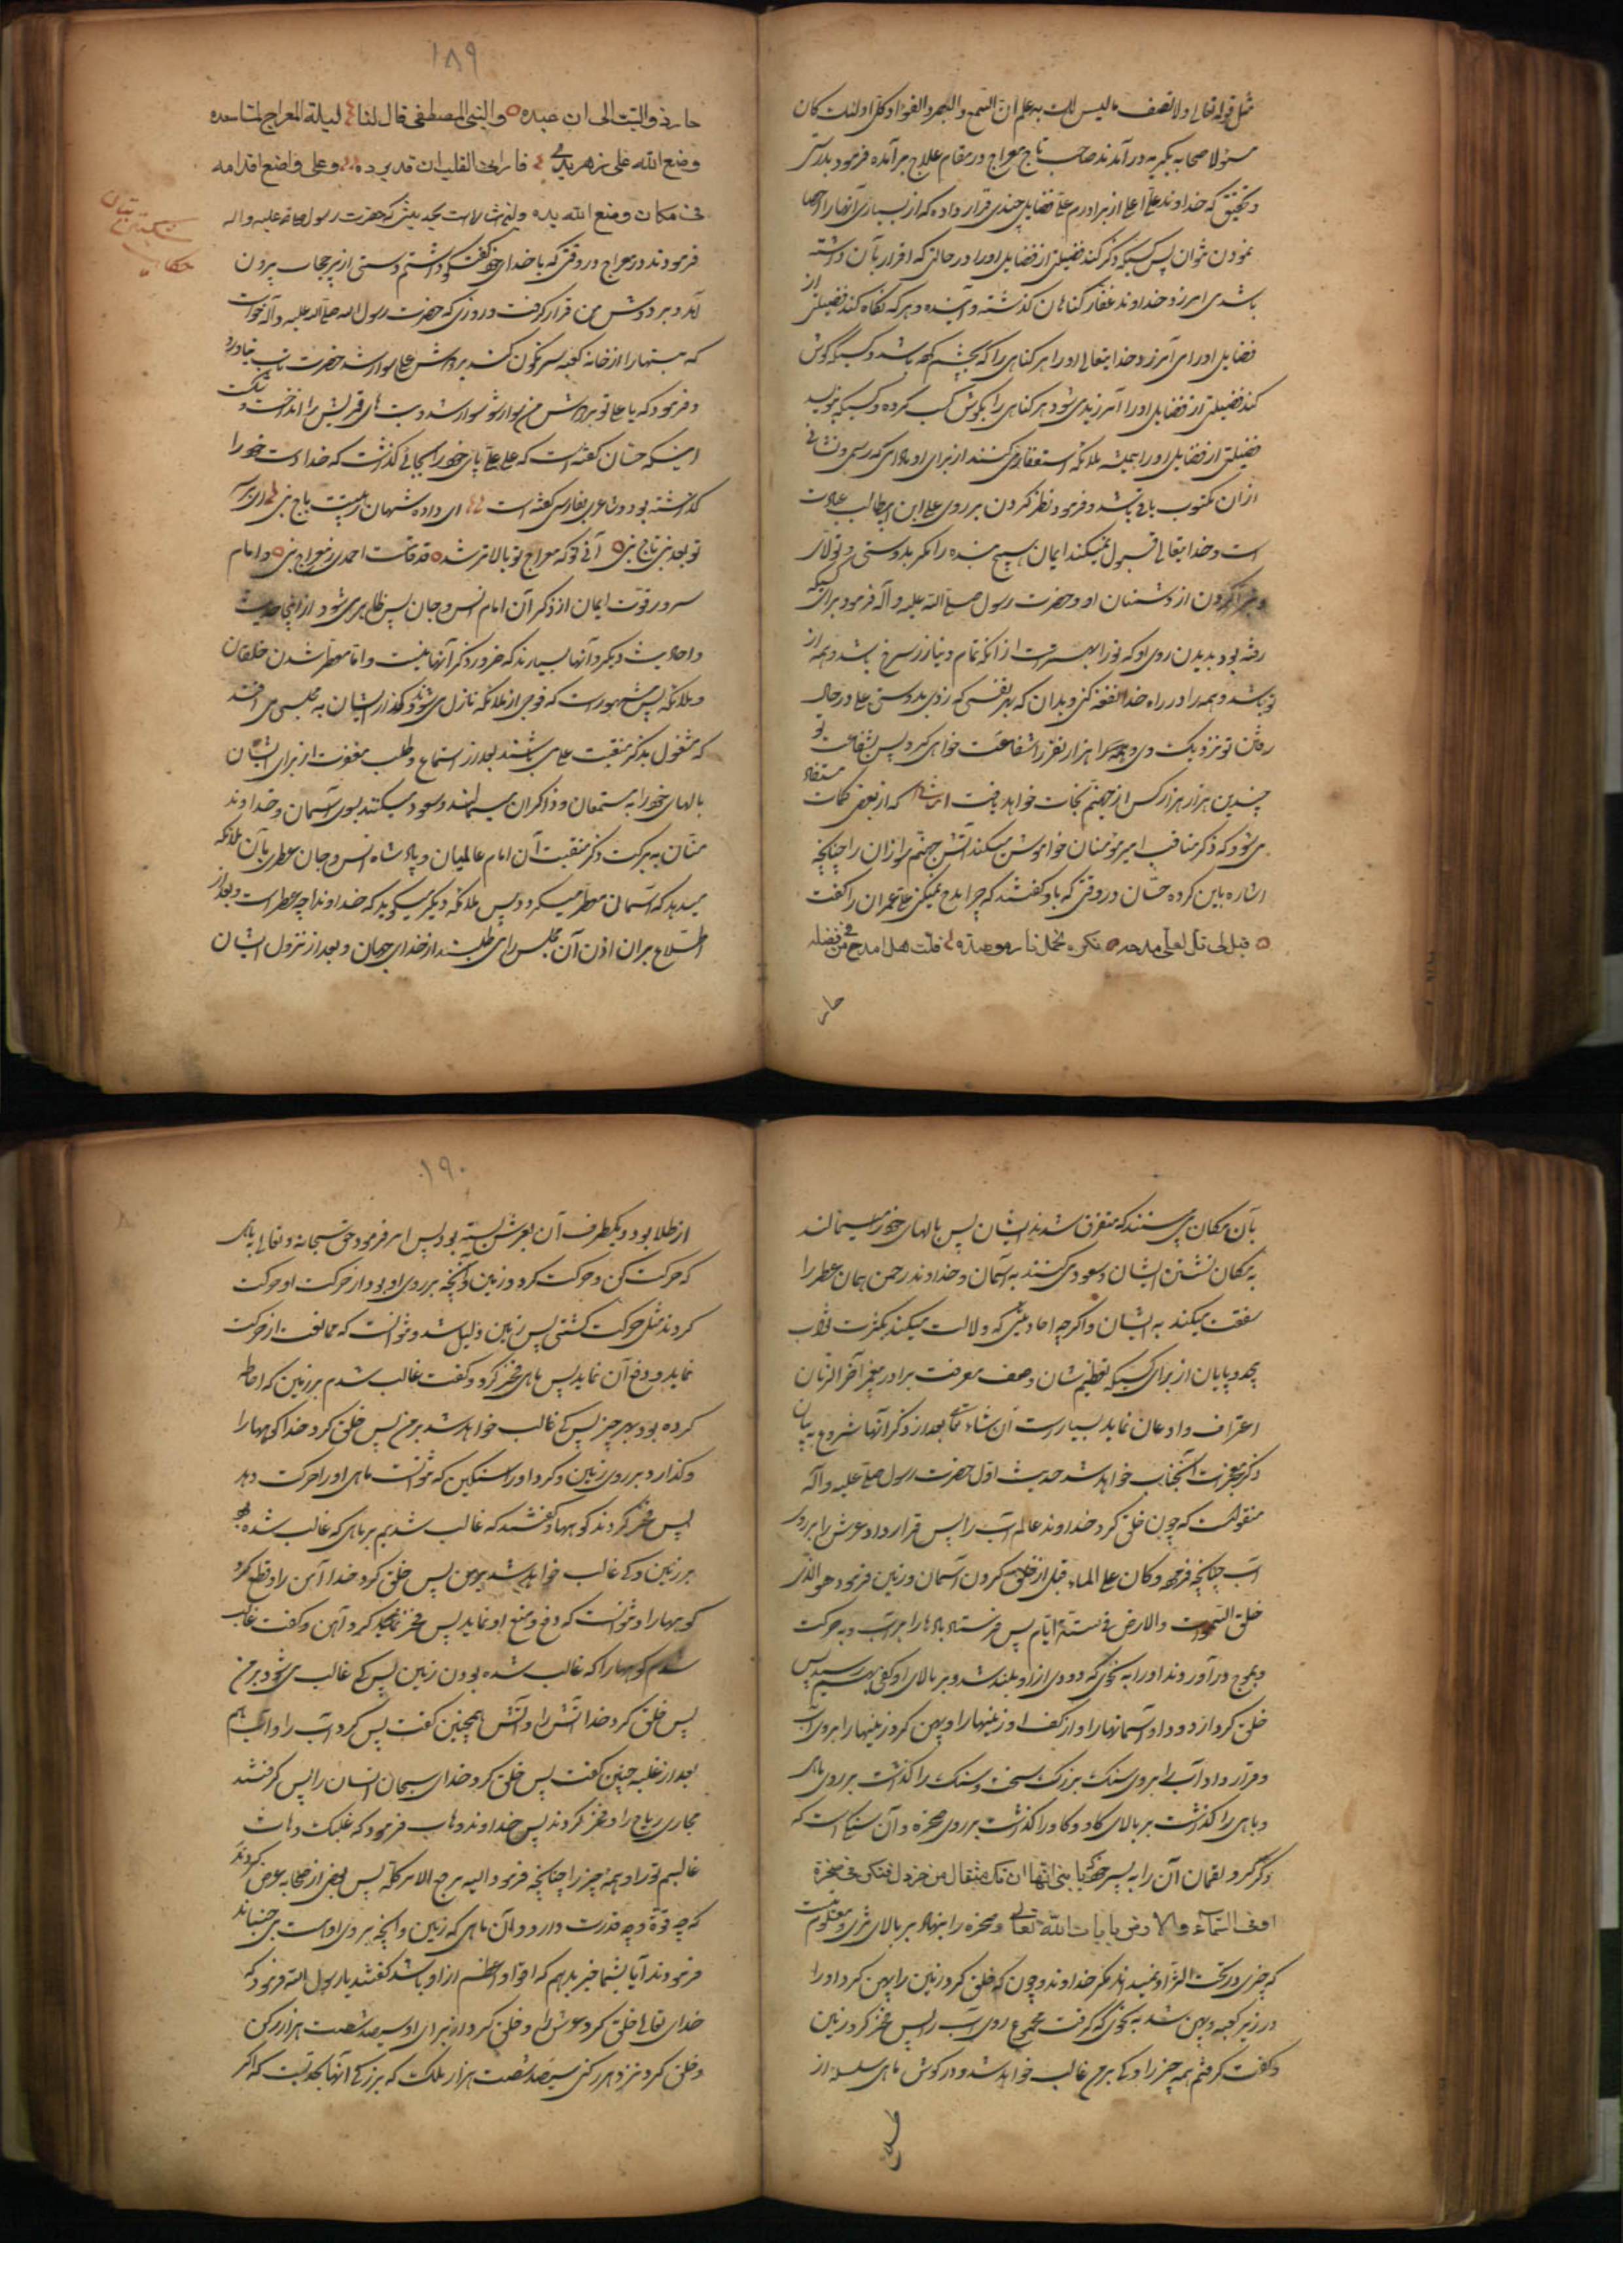 مثل قوله تعالی ولا تقف ما لیس لک به علم ان السمع والبصر والفؤاد کل اولئک کان
مسؤلا صحابه بگریه در آمدند صاحب تاج معراج در مقام علاج بر آمده فرمود بدرستی
و تحقیق که خداوند علی اعلی از برادرم علی فضایل چندی قرار داده که از بسیاری آنها را احصا
نمودن نتوان پس کسیکه ذکر کند فضیلتی از فضایل او را در حالتی که اقرار بآن داشته
باشد می امرزد خداوند غفار کناهان کذشته و آینده و هر که نکاه کند فضیلتی از
فضایل او را می آمرزد خدایتعالی او را هر کناهی را که بچشم کرده باشد و کسیکه گوش
کند فضیلتی از فضایل او را آمرزیده می شود هر کناهی را بگوش کسب کرده و کسیکه بنویسد
فضیلتی از فضایل او را همیشه ملائکه استغفار می کنند از برای او مادامی که رسمی و نشانی
ازان مکتوب باقی باشد و فرمود نظر کردن بر روی علی ابن ابیطالب عبادت
است و خدایتعالی قبول نمیکند ایمان هیچ بنده را مگر بدوستی و تولای
و تبرا کردن از دشمنان او و حضرت رسول صلی الله علیه و آله فرمود برای کسیکه
رفته بود بدیدن روی او که تو را بهتر است از آنکه تمام دنیا زر سرخ باشد و همه از
تو باشد و همه را در راه خدا نفقه کنی و بدان که بهر نفسی که زدی بدوستی علی در حال
رفتن تو نزدیک وی و هزار نفر را شفاعت خواهی کرد پس بشفاعت تو
چندین هزار هزار کس از جهنم نجات خواهد یافت که از بعضی کلمات مستفاد
می شود که ذکر مناقب امیر مؤمنان خواموش میکند آتش جهنم سوزان را چنانچه
اشاره باین کرده حسّان در وقتی که باو کفتند که چرا مدح نمیکنی علی عمران را کفت
قیل لی قل لعلی مدحه ذکره یخمد نارا موصده قلت هل امدح من فی فضله
حار
۱۸۹
حار ذو اللب الی ان عبده والنبی المصطفی قال لنا لیلة المعراج لما صعده
وضع الله علی ظهری یدا فارانی القلب ان قد برده وعلی واضع اقدامه
فی مکان وضع الله یده و این اشاره است بحدیثی که حضرت رسول صلی الله علیه و اله
فرمودند در معراج در وقتی که با خدای خود کفتگو داشتم دستی از زیر حجاب بیرون
آمد و بر دوش من قرار کرفت و در روزی که حضرت رسول الله صلی الله علیه و آله خواست
که بتها را از خانه کعبه سرنکون کند بر دوش علی سوار شد حضرت تاب نیاورد
و فرمود که یا علی تو بر دوش من سوار شو سوار شد و بت های قریش را انداخت و شکست
اینکه حسّان کفته است که علی پای خود را بجائی کذاشت که خدا دست خود را
کذاشته بود و شاعری بفارسی کفته است ای داده شهان زهیبت باج نبی ای بر سر
تو بعد نبی تاج نبی آنی تو که معراج تو بالاتر شد یک قامت احمدی ز معراج نبی و امام
سرور قوت ایمان از ذکر آن امام انس و جان پس ظاهر می شود از این حدیث
و احادیث دیگر و آنها بسیارند که ضرور ذکر آنها نیست و اما معطر شدن خلقان
و ملائکه پس مشهور است که فوجی از ملائکه نازل می شوند و کذار ایشان به مجلسی می افتد
که مشغول بذکر منقبت علی می باشند بعد از استماع و طلب مغفرت از برای ایشان
بالهای خود را به مستمعان و ذاکران میمالند و صعود میکنند بسوی آسمان و خداوند
منّان به برکت ذکر منقبت آن امام عالمیان و پادشاه انس و جان عطری بآن ملائکه
میدهد که آسمان معطر میکردد پس ملائکه دیگر میکوید که خداوندا چه عطر است و بعد از
اطلاع بران اذن آن مجلس را می طلبند از خدای جهان و بعد از نزول ایشان
بآن مکان می بینند که متفرق شدند ایشان پس بالهای خود را میمالند
به مکان نشستن ایشان و صعود می کنند به آسمان و خداوند رحمن همان عطر را
شفقت میکند به ایشان و اگرچه احادیثی که دلالت میکند بکثرت ثواب
بیحد و پایان از برای کسیکه تعظیم شان وصف معرفت برادر پیغمبر آخر الزمان
اعتراف و اذعان نماید بسیار است ان شاء الله تعالی بعد از ذکر آنها شروع به بیان
ذکر معجزات آنجناب خواهد شد حدیث اوّل حضرت رسول صلی علیه و آله
منقولست که چون خلق کرد خداوند عالم آب را پس قرار داد عرش را بر روی
آب چنانچه فرموده و کان علی الماء قبل از خلق کردن آسمان و زمین فرمود هو الذی
خلق السموات والارض فی ستة ایام پس فرستاد بادها را بر آب و به حرکت
و بموج در آوردند او را به نحوی که دودی از او بلند شد و بر بالای او کفی بهم رسید پس
خلق کرد از دود او آسمانها را و از کف او زمینها را و پهن کرد زمینها را بر روی آب
و قرار داد آب را بر روی سنک بزرگ سخت و سنک را کذاشت بر روی ماهی
و ماهی را کذاشت بر بالای کاو و کاو را کذاشت بر روی صخره و آن سنکی است که
ذکر کرد لقمان آن را به پسر خود که یا بنی انها ان تک مثقال حبة من خردل فتکن فی صخرة
او فی السماء والارض یات الله تعالی و صخره را بنهاد بر بالای ثری و معلوم نیست
که چیزی در تحت الثری او نمیداند مگر خداوند و چون که خلق کرد زمین را پهن کرد او را
در زیر کعبه و پهن شد به نحوی که گرفت مجموع روی آب را پس فخر کرد زمین
و گفت کرفتم همه چیز را و که بر من غالب خواهد شد و در کوش ماهی سلسله از
۱۹۰
از طلا بود و یکطرف آن بعرش بسته بود پس امر فرمود حق سبحانه و تعالی به ماهی
که حرکت کن و حرکت کرد و زمین و آنچه بر روی او بود از حرکت او حرکت
کردند مثل حرکت کشتی پس زمین ذلیل شد و نتوانست که ممانعت از حرکت
نماید و دفع آن نماید پس ماهی فخر کرد و کفت غالب شدم بر زمین که احاطه
کرده بود بهر چیز پس که غالب خواهد شد بر من پس خلق کرد خدا کوهها را
و کذارد بر روی زمین و کرد او را سنکین که نتوانست ماهی او را حرکت دهد
پس فخر کردند کوهها و کفتند که غالب شدیم بر ماهی که غالب شده بود
بر زمین و که غالب خواهد شد بر من پس خلق کرد خدا آهن را و قطع کرد
کوهها را و نتوانست که دفع و منع او نماید پس فخر کرد آهن و کفت غالب
شدم کوهها را که غالب شده بودن زمین پس که غالب می شود بر من
پس خلق کرد خدا آتش را و آتش همچنین کفت پس کرد آب را و آب هم
بعد از غلبه چنین کفت پس خلق کرد خدای سبحان انسان را پس کرفتند
مجاری ریاح را و فخر کردند پس خداوند وهاب فرمود که
غالبم تو را و همه چیز را چنانچه فرمود الیه یرجع الامر کله پس بعضی از صحابه عرض کردند
که چه قوة و چه قدرت دارد آن ماهی که زمین و آنچه بر روی اوست می جنباند
فرمودند آیا بشما خبر بدهم که اقوا و اعظم از او باشد کفتند یا رسول الله فرمود که
خدای تعالی خلق کرد عرش را و خلق کرد از برای او سیصد شصت هزار رکن
و خلق کرد نزد هر رکنی سیصد شصت هزار ملک که بزرگ آنها بحدیست که اگر